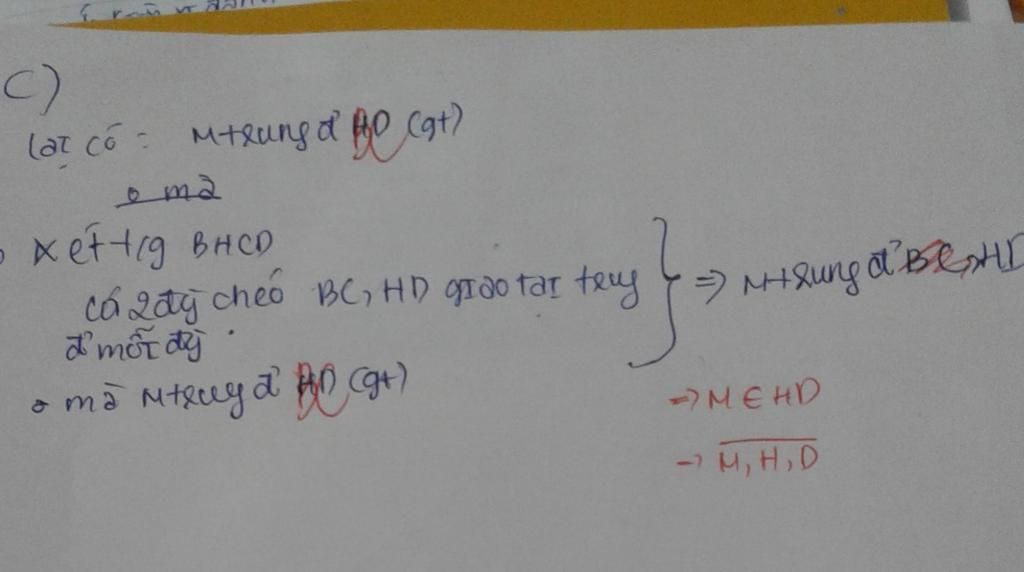 C)
lại có: M trung đ' BC (gt)
mà
xét tứg BHCD
có 2 đg chéo BC, HD giao tại trung
đ' mỗi đg
mà M trung đ' BC (gt)
=> M trung đ' BC, HD
=> M ∈ HD
-> M, H, D